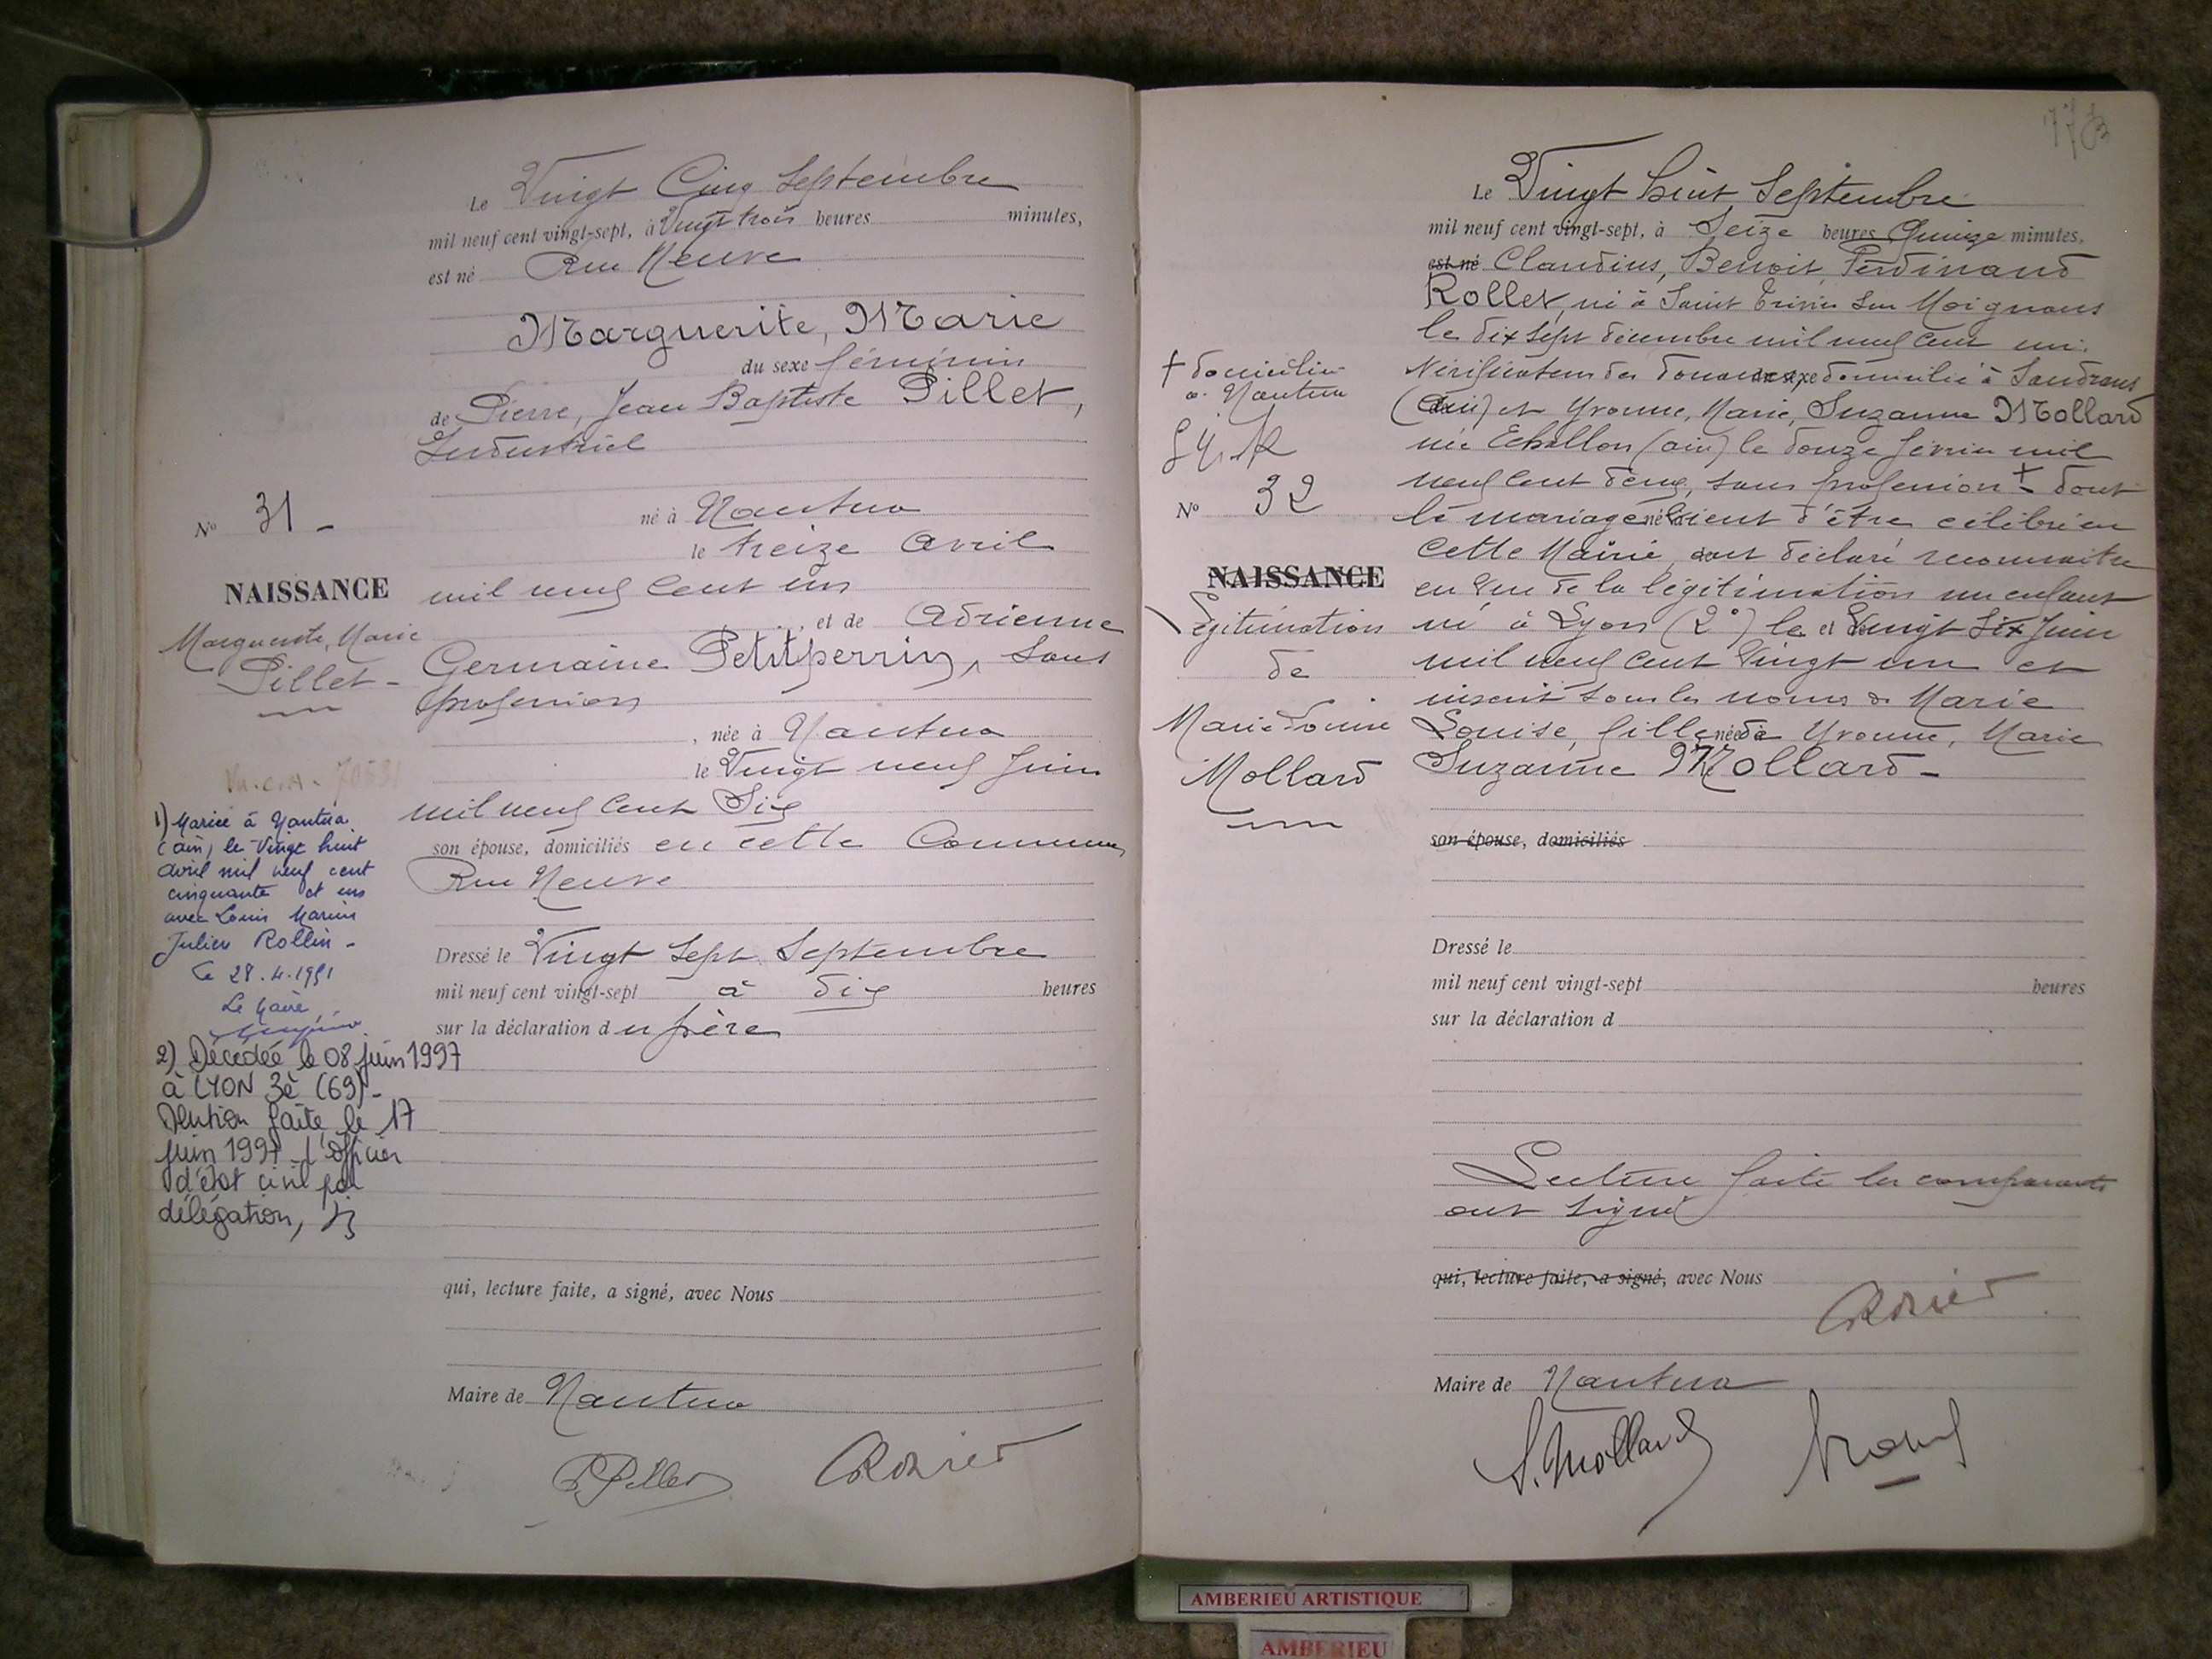 Le Vingt Cinq Septembre
mil neuf cent vingt-sept, à Vingt trois heures minutes,
est né Rue Neuve
Marguerite, Marie
du sexe féminin
de Pierre, Jean Baptiste Pillet,
Industriel
né à Nantua
No 31 -
le treize Avril
NAISSANCE
mil neuf Cent un
Marguerite, Marie
Pillet -
, et de Adrienne
Germaine Petitperrin, sans
profession
, née à Nantua
le Vingt neuf Juin
mil neuf Cent Six
son épouse, domiciliés en cette Commune
Rue Neuve
Dressé le Vingt Sept Septembre
mil neuf cent vingt-sept à dix heures
sur la déclaration du père
1) Mariée à Nantua
(ain) le Vingt huit
avril mil neuf cent
cinquante et un
avec Louis Marius
Julien Rollin -
le 28.4.1951
Le Maire,
2) Décédée le 08 juin 1997
à LYON 3è (69) -
Mention faite le 17
juin 1997 - L'officier
d'état civil par
délégation,
qui, lecture faite, a signé, avec Nous
Maire de Nantua
P. Pillet
Le Vingt huit Septembre
mil neuf cent vingt-sept, à Seize heures Quinze minutes,
est né Claudius, Benoit, Ferdinand
Rollet, né à Saint Trivier sur Moignans
le dix sept décembre mil neuf cent un.
Vérificateur des Douanes du sexe domicilié à Sandrans
(Ain) et Yvonne, Marie, Suzanne Mollard
née Echallon (ain) le douze février mil
neuf Cent deux, sans profession + - dont
le mariage né à vient d'être célébré en
Cette Mairie, ont déclaré reconnaitre
en vue de la légitimation un enfant
né à Lyon (2°) le et de Vingt Six Juin
mil neuf Cent Vingt un et
inscrit sous les noms de Marie
Louise, fille née à de Yvonne, Marie
Suzanne Mollard -
+ domiciliée
à Nantua
No 32
NAISSANCE
Légitimation
de
Marie Louise
Mollard
son épouse, domiciliés
Dressé le
mil neuf cent vingt-sept heures
sur la déclaration d
Lecture faite les comparants
ont signé
qui, lecture faite, a signé, avec Nous
Maire de Nantua
S. Mollard
AMBERIEU ARTISTIQUE
AMBERIEU